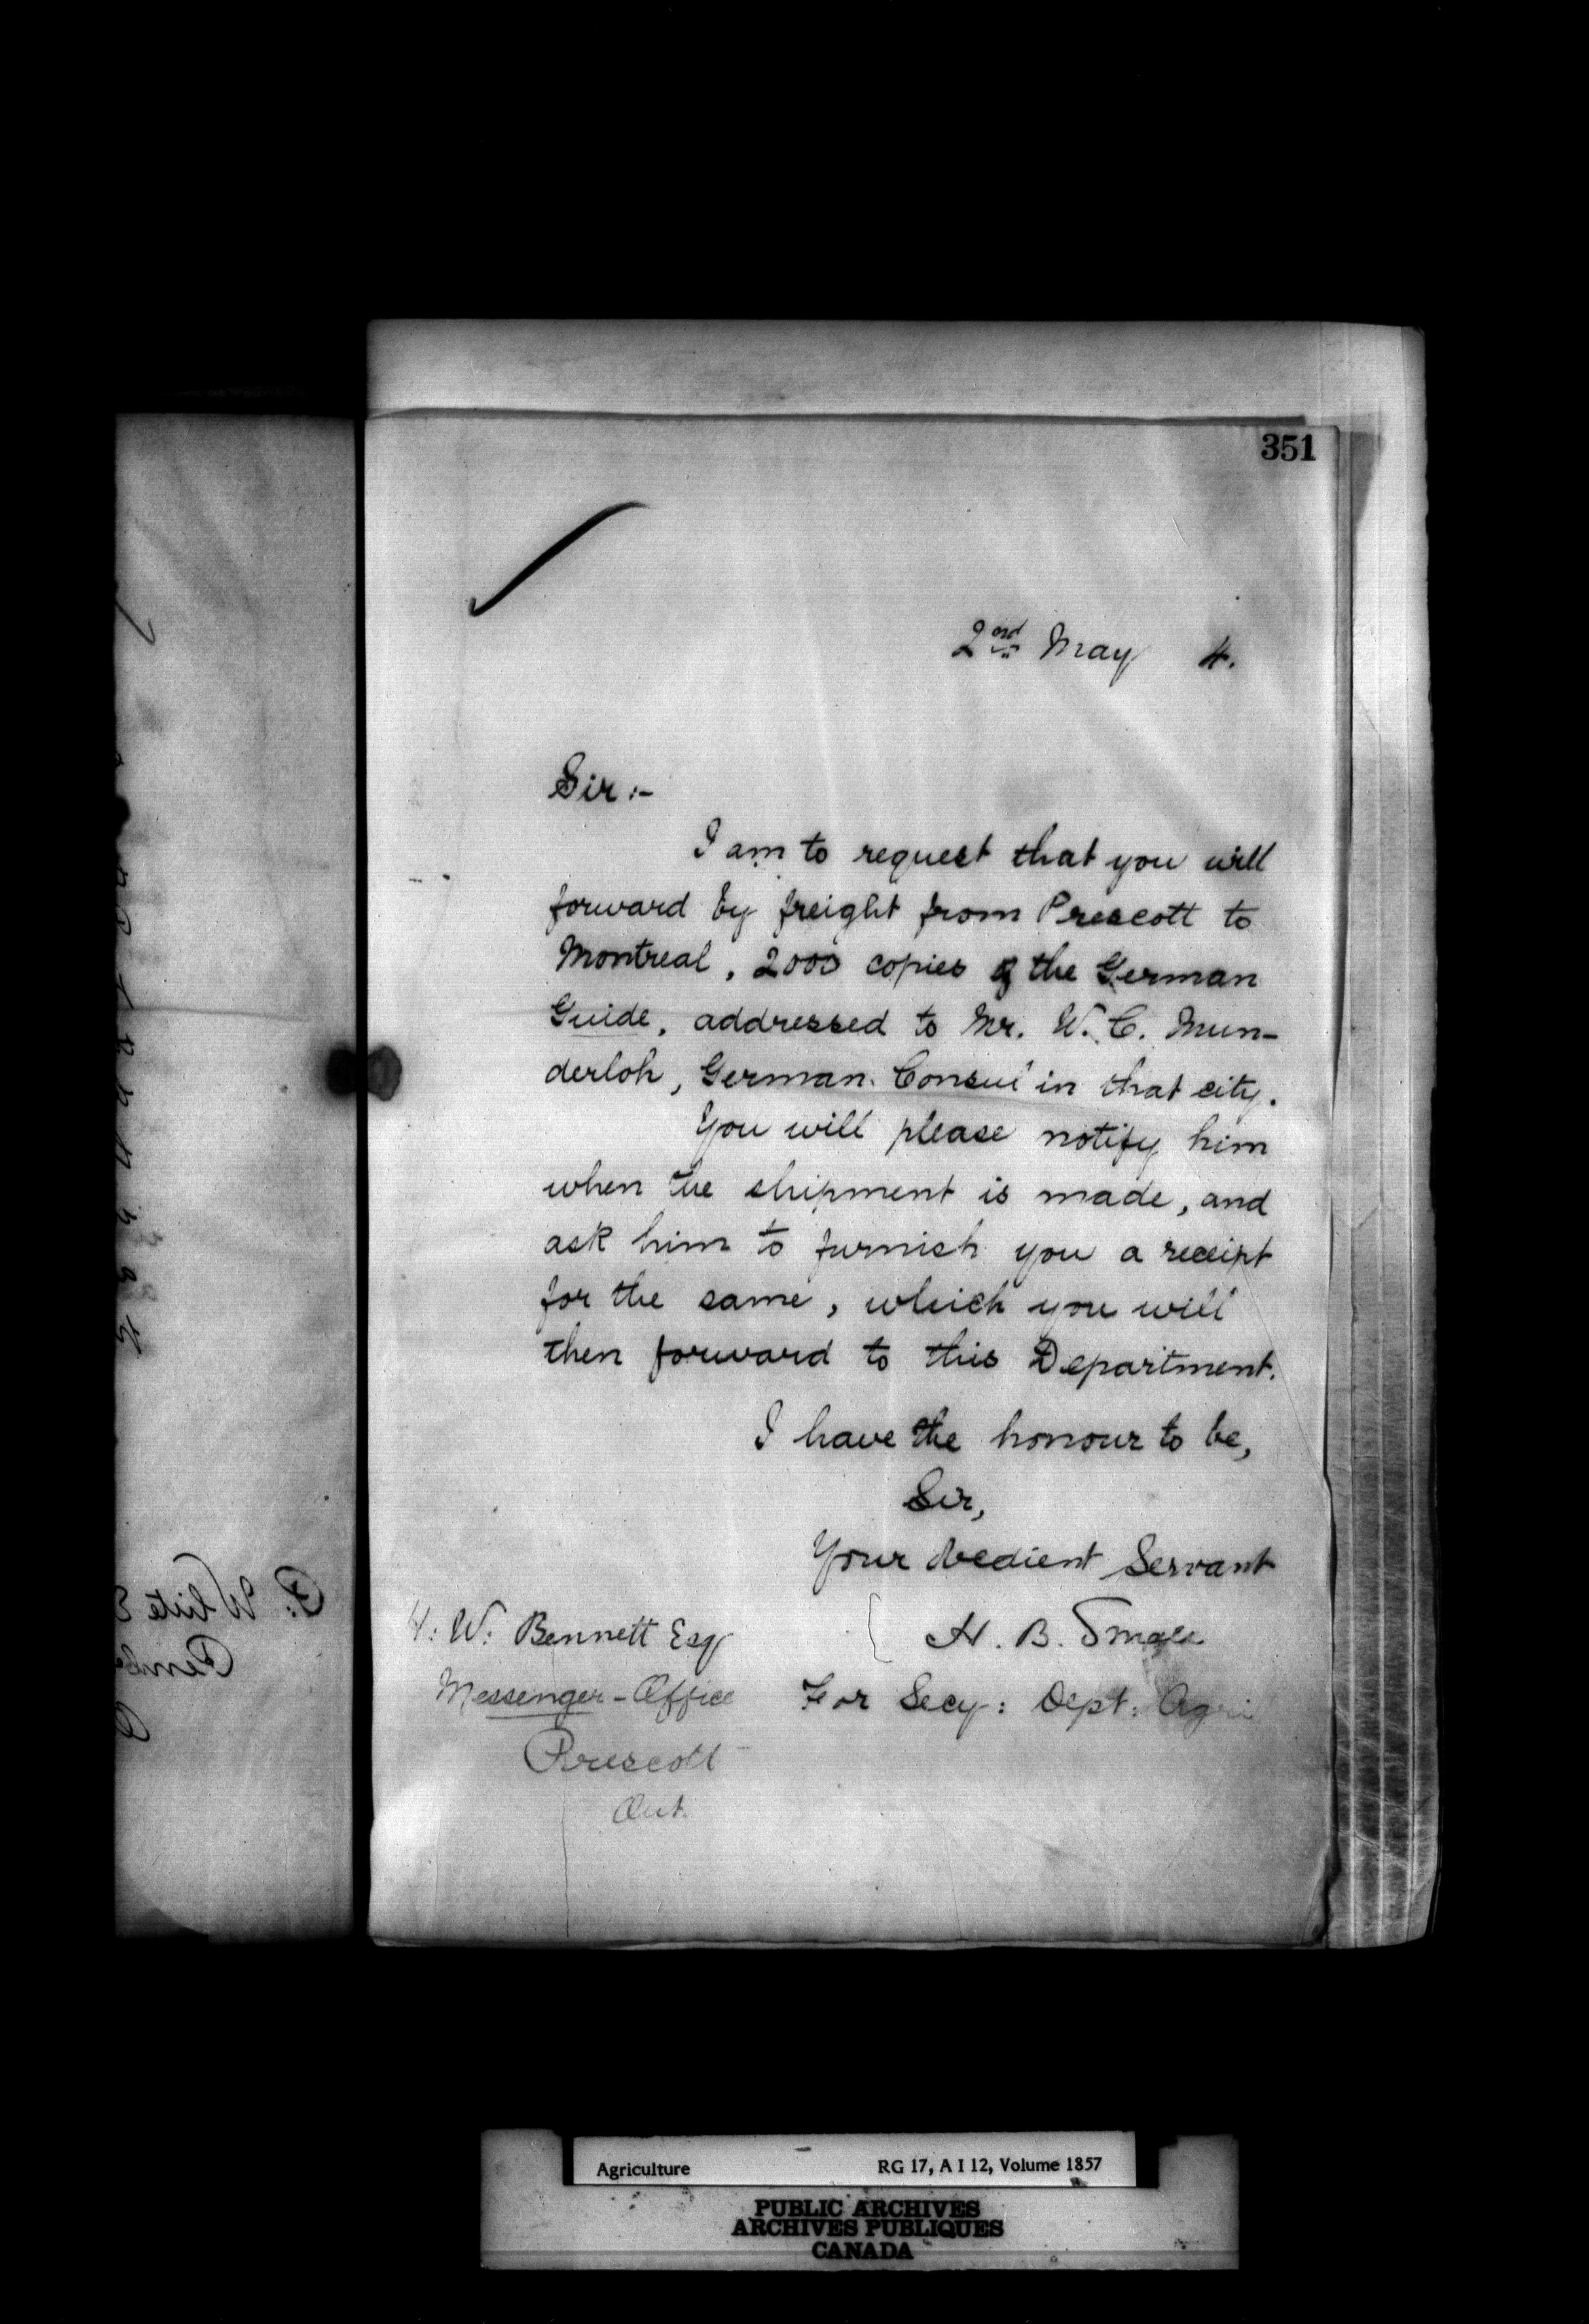 351
2nd May 4.
Sir:-
I am to request that you will
forward by freight from Prescott to
Montreal, 2000 copies of the German
Guide, addressed to Mr. W. C. Mun-
derloh, German Consul in that city.
You will please notify him
when the shipment is made, and
ask him to furnish you a receipt
for the same, which you will
then forward to this Department.
I have the honour to be,
Sir,
Your obedient Servant
H. B. Small
For Secy: Dept: Agri
H: W: Bennett Esq
Messenger-Office
Prescott
Ont.
P. White
Pemb
Agriculture RG 17, A I 12, Volume 1857
PUBLIC ARCHIVES
ARCHIVES PUBLIQUES
CANADA